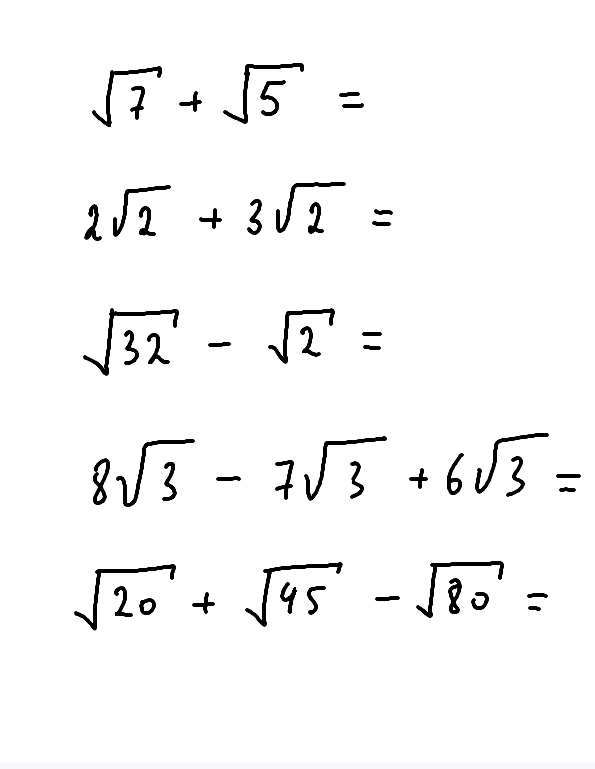 √7 + √5 =
2√2 + 3√2 =
√32 - √2 =
8√3 - 7√3 + 6√3 =
√20 + √45 - √80 =